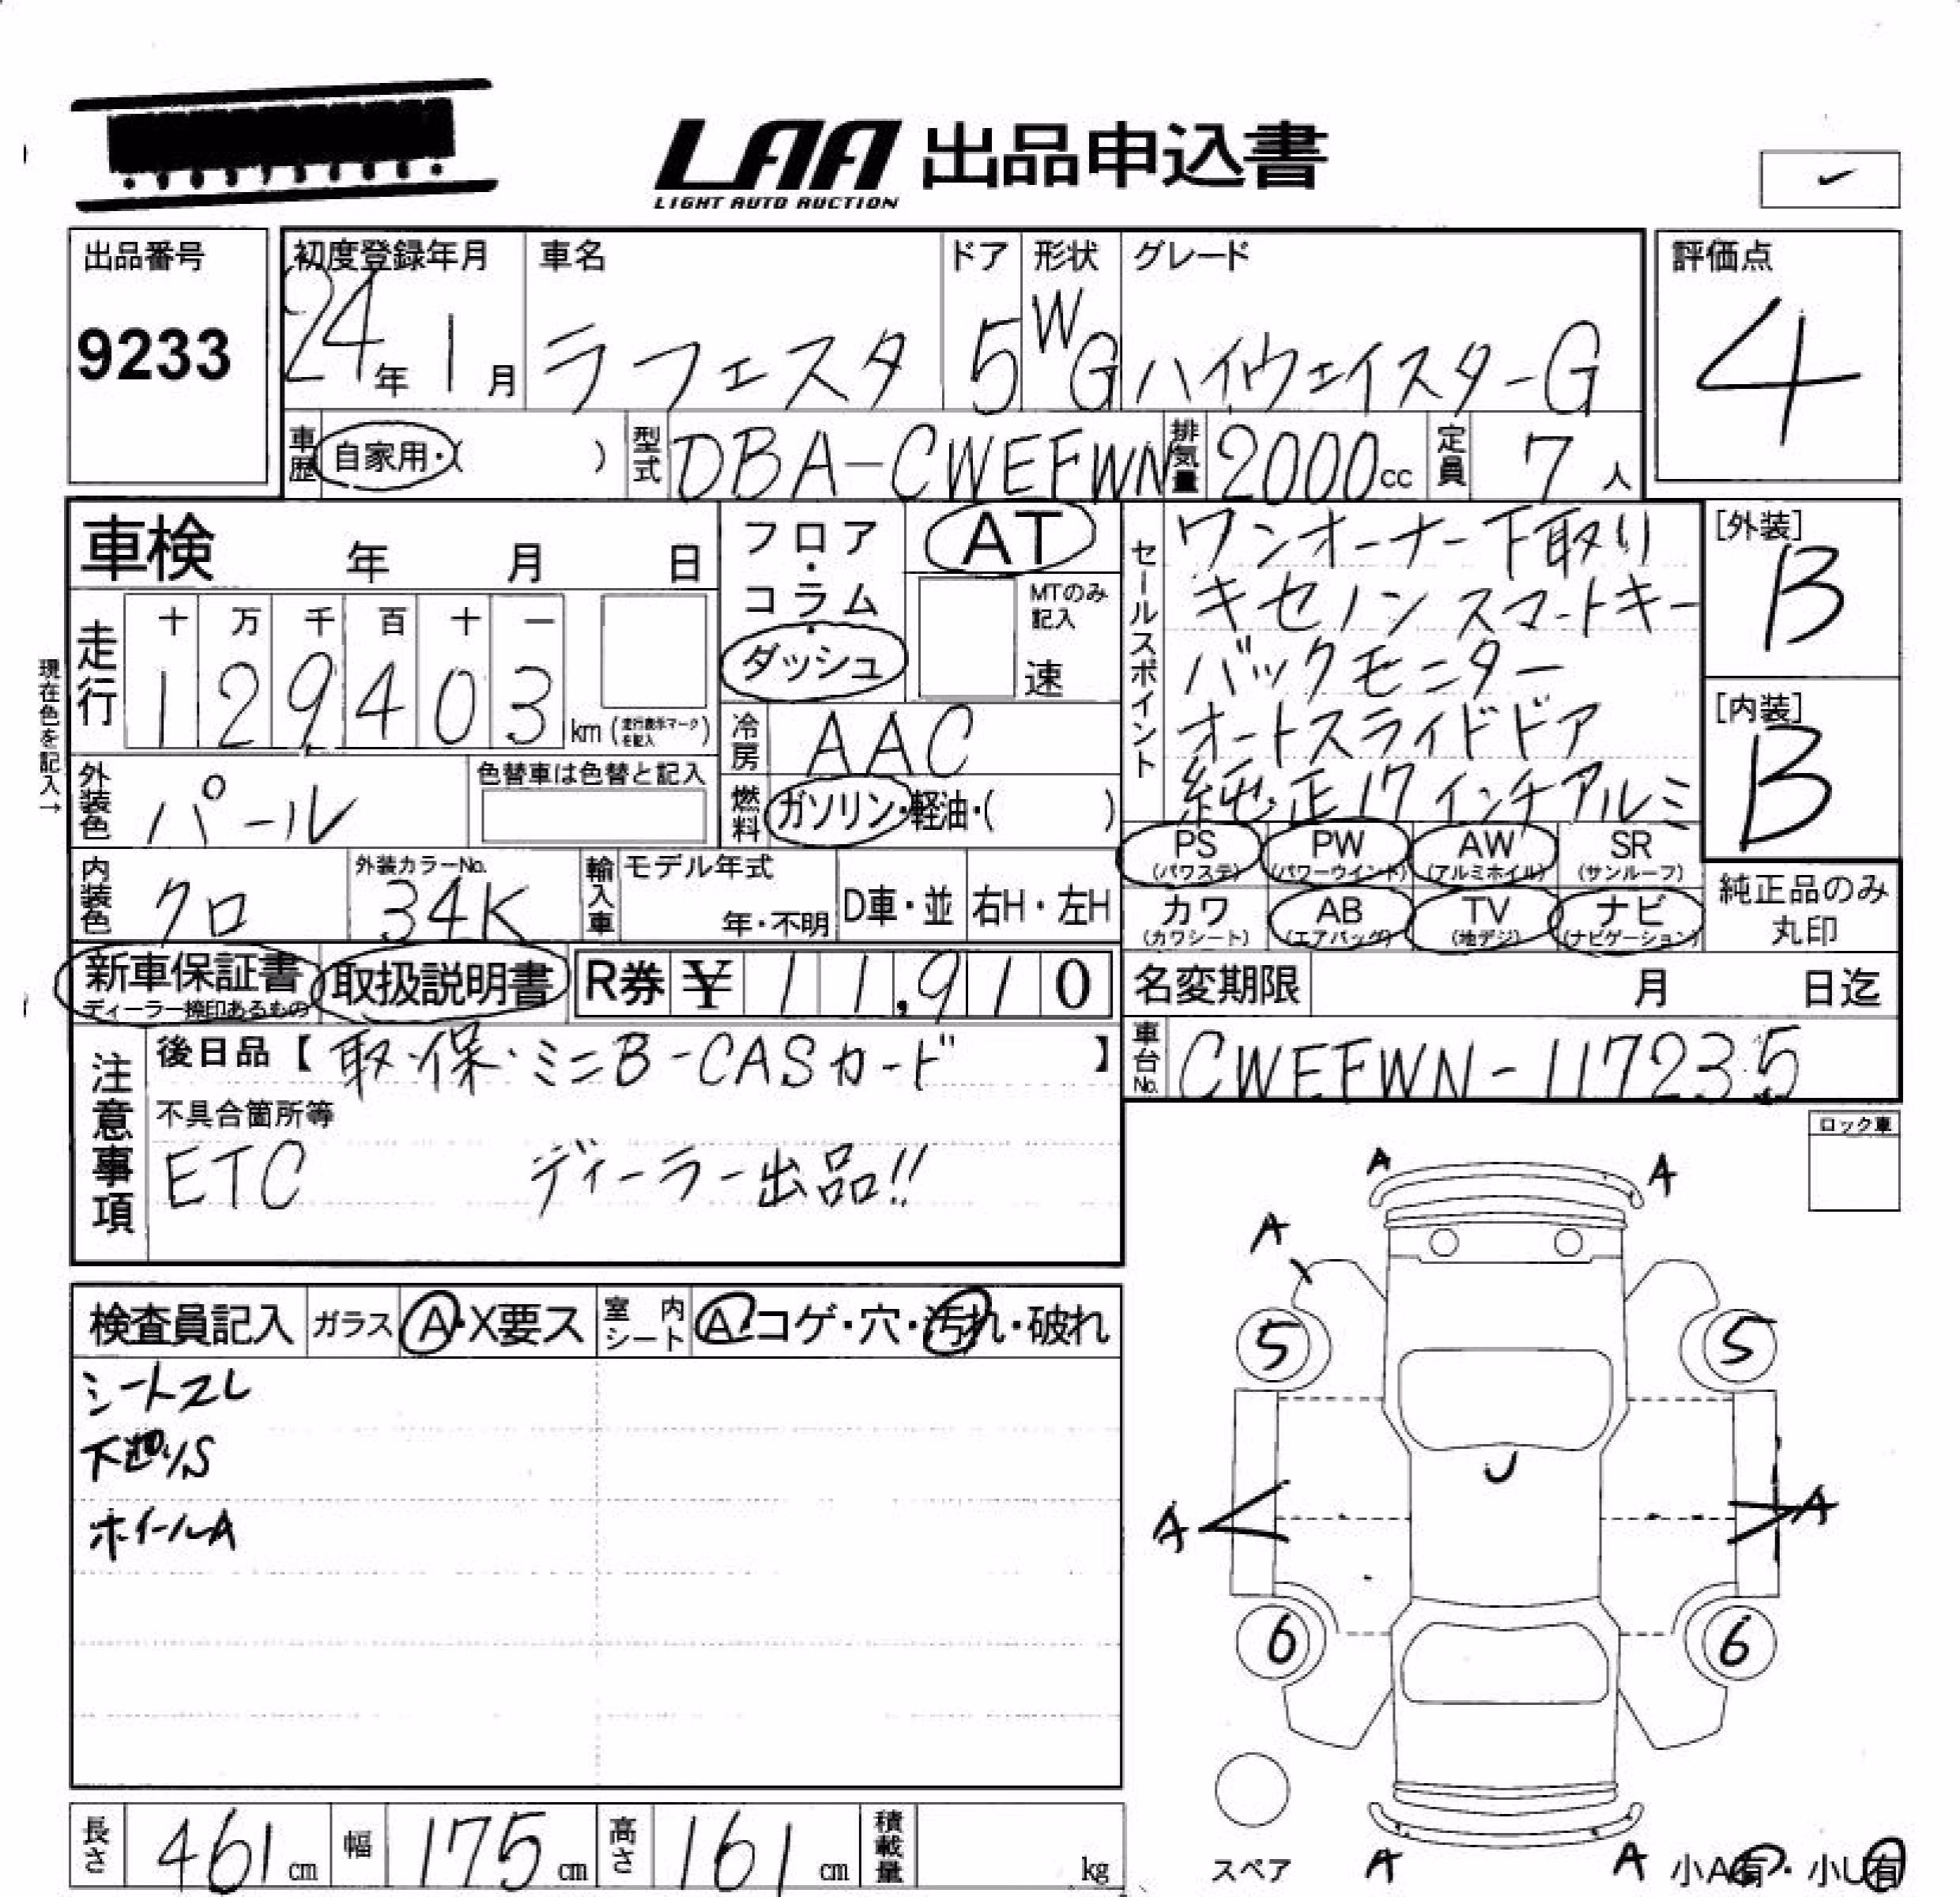 LAA 出品申込書
LIGHT AUTO AUCTION
出品番号
9233
初度登録年月
24年1月
車名
ラフェスタ
ドア
5
形状
WG
グレード
ハイウェイスターG
評価点
4
車歴 自家用・( )
型式 DBA-CWEFWN
排気量 2000cc
定員 7人
車検 年 月 日
フロア・コラム・ダッシュ
AT
MTのみ記入
速
セールスポイント
ワンオーナー下取り
キセノン スマートキー
バックモニター
オートスライドドア
純正17インチアルミ
[外装]
B
[内装]
B
現在色を記入→
走行
十 万 千 百 十 一
1 2 9 4 0 3 km (走行表示マークを記入)
冷房 AAC
外装色 パール
色替車は色替と記入
燃料 ガソリン・軽油・( )
PS (パワステ)
PW (パワーウインド)
AW (アルミホイル)
SR (サンルーフ)
カワ (カワシート)
AB (エアバッグ)
TV (地デジ)
ナビ (ナビゲーション)
純正品のみ
丸印
内装色 クロ
外装カラーNo.
34K
輸入車
モデル年式
年・不明
D車・並
右H・左H
新車保証書
ディーラー捺印あるもの
取扱説明書
R券 ¥ 11,910
名変期限 月 日迄
車台No. CWEFWN-117235
注意事項
後日品【取・保・ミニB-CASカード】
不具合箇所等
ETC ディーラー出品!!
ロック車
検査員記入
ガラス A・X要ス
室内シート A・コゲ・穴・汚れ・破れ
シートスレ
下廻りS
ホイールA
A A
A
5 5
U
A A
6 6
スペア
A A
小A有・小U有
長さ 461cm
幅 175cm
高さ 161cm
積載量 kg